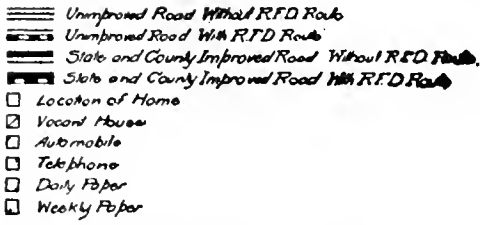 Unimproved Road Without R.F.D Route
Unimproved Road With R.F.D Route
State and County Improved Road Without R.F.D Route.
State and County Improved Road With R.F.D Route
Location of Home
Vacant House
Automobile
Telephone
Daily Paper
Weekly Paper